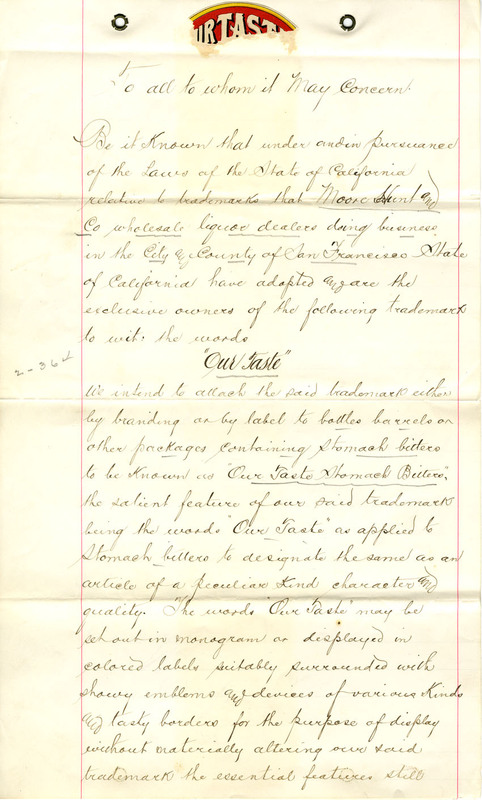 UR TAST
To all to whom it May Concern.
Be it Known that under and in pursuance
of the Laws of the State of California
relative to trademarks that Moore Hunt and
Co wholesale liquor dealers doing business
in the City & County of San Francisco State
of California have adopted and are the
exclusive owners of the following trademark
to wit: the words
"Our Taste"
2-362
We intend to attach the said trademark either
by branding or by label to bottles barrels or
other packages containing Stomach bitters
to be Known as "Our Taste Stomach Bitters",
the salient feature of our said trademark
being the words "Our Taste" as applied to
Stomach bitters to designate the same as an
article of a peculiar Kind character and
quality. The words "Our Taste" may be
set out in monogram or displayed in
colored labels suitably surrounded with
showy emblems and devices of various Kinds
and tasty borders for the purpose of display
without materially altering our said
trademark the essential features still